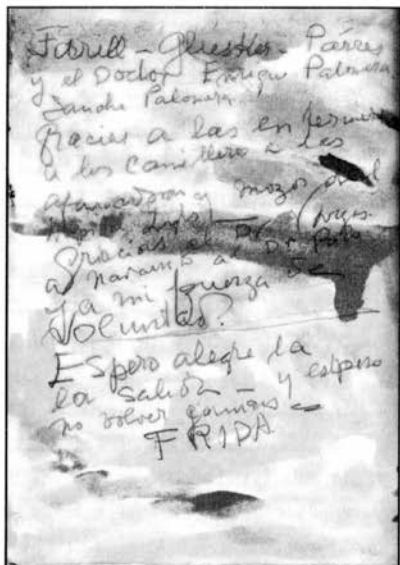 Farill - Glusker - Párres
y el Doctor Enrique Palomera
Sanche Palomera
Gracias a las enfermer
a los camilleros a las
afanadoras y mozos del
Hospital Inglés -
Gracias al Dr Vargas
a Navarro al Dr Polo
y a mi fuerza de
Voluntad.
Espero alegre la
la salida - y espero
no volver jamás -
FRIDA